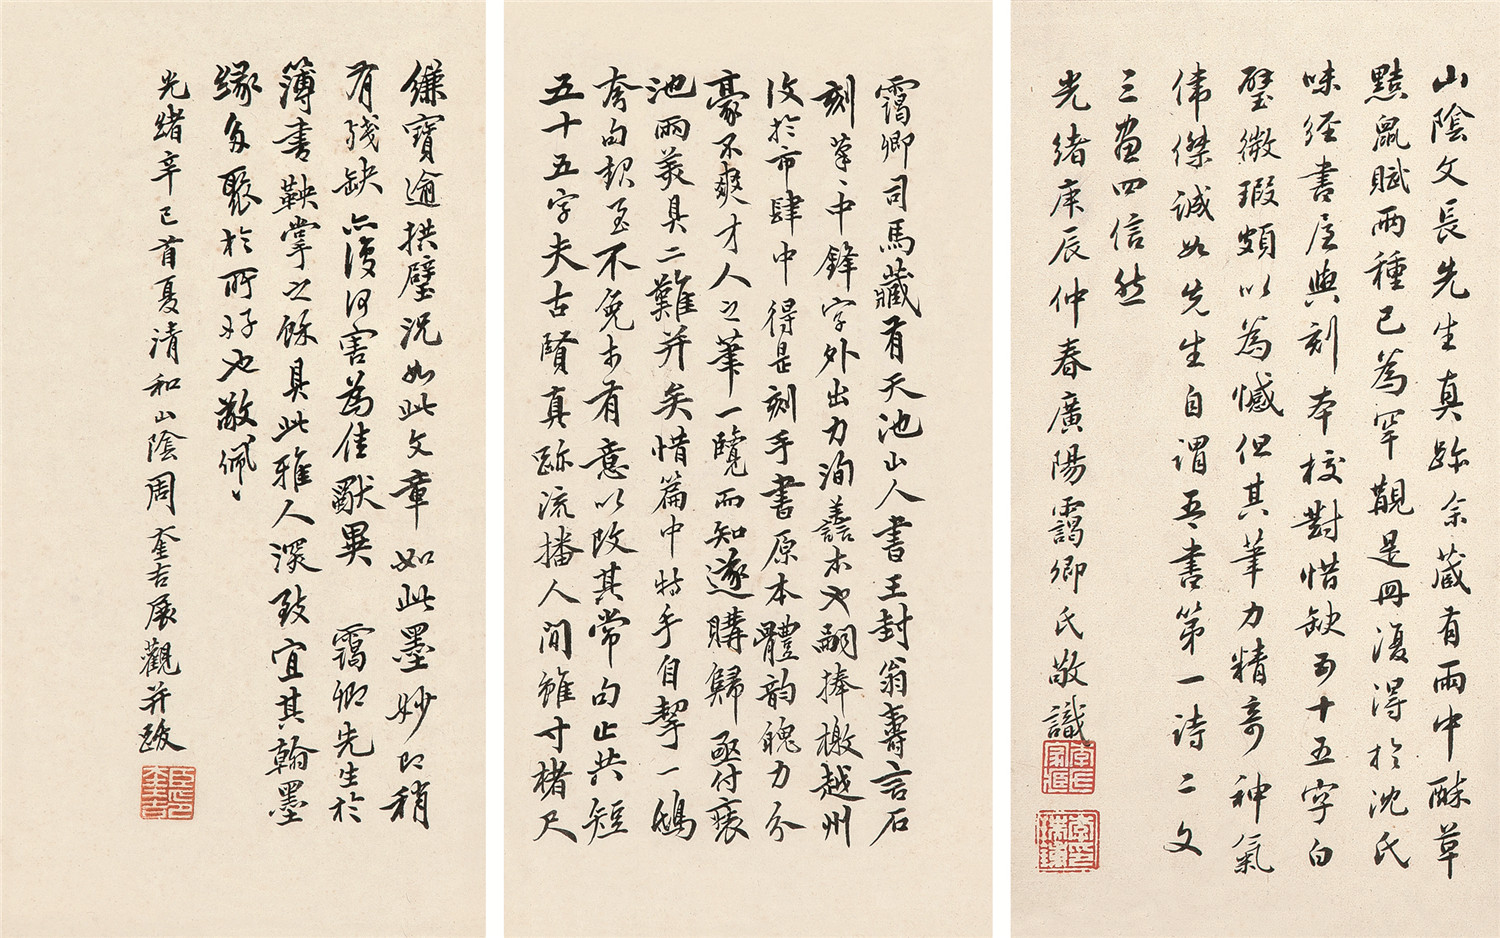 山陰文長先生真跡余蔵有雨中酥草
黠鼠賦兩種已為罕觀是冊復得於沈氏
味經書屋與刻本校對惜缺五十五字白
璧微瑕頗以為憾但其筆力精奇神氣
偉傑誠如先生自謂吾書第一詩二文
三畫四信然
光緒庚辰仲春廣陽靄卿氏敬識
靄卿司馬藏有天池山人書王封翁壽言石
刻筆筆中鋒字外出力洵譱本也嗣捧檄越州
於市肆中得是刻手書原本體韵魄力分
豪不爽才人之筆一覽而知遂購歸亟付裝
池兩美具二難并矣惜篇中特手自挈一鴟
夸句 至不免有意以改其常句止共短
五十五字夫古賢真跡流播人間雖寸楮尺
縑寶逾拱璧況如此文章如此墨妙即稍
有殘缺亦復何害為佳歟異 靄卿先生於
簿書鞅掌之餘具此雅人深致宜其翰墨
緣多聚於所好也敬佩佩
光緒辛巳首夏清和山陰周奎吉展觀并跋